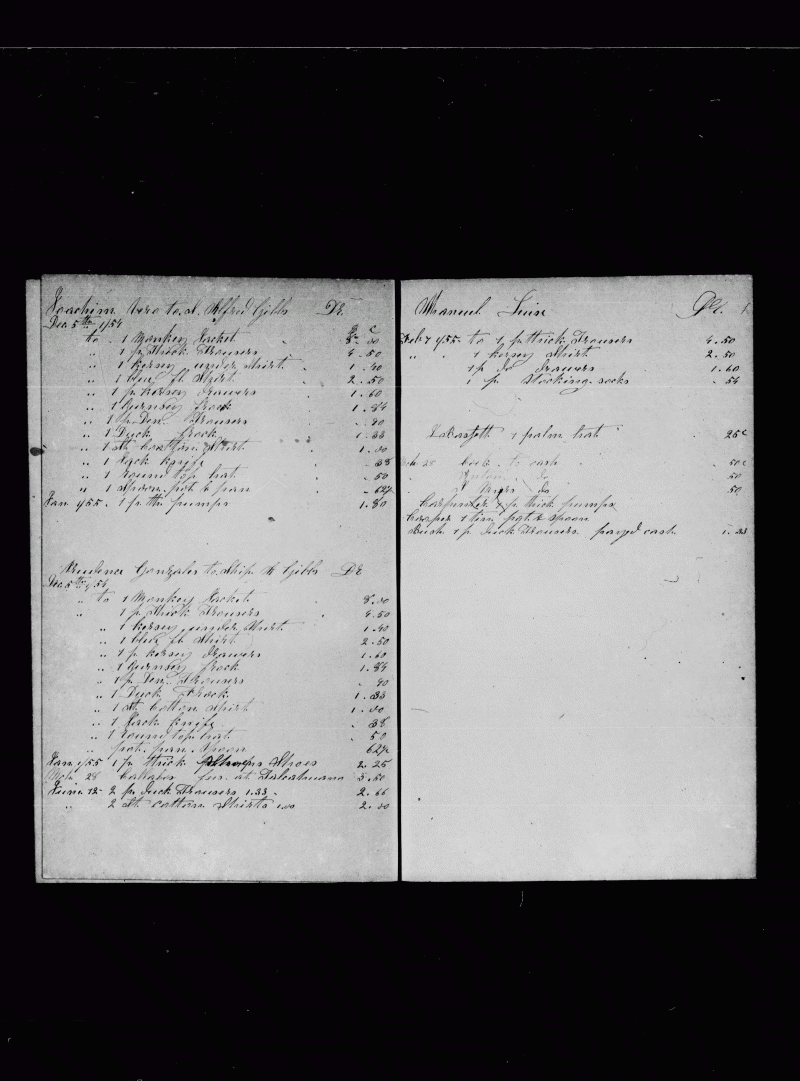 Joachim Vero to S. Alfred Gibbs Dr.
Dec. 5th 1/54 $ c
to 1 Monkey Jacket 8.00
" 1 p. Thick Trousers 4.50
" 1 kersey under Shirt. 1.40
" 1 blue fl. Shirt. 2.50
" 1 p. kersey drawers 1.60
" 1 Gurnsey frock 1.84
" 1 p. Den. Trousers .90
" 1 Duck frock 1.33
" 1 St. Cotton Shirt 1.00
" 1 Jack knife .38
" 1 round top hat .50
" 1 Spoon. pot & pan .62½
Jan 1/55. 1 p. Th. pumps 1.80
Prudence Gonzales to Ship A Gibbs Dr
Dec. 5th 1/54
" to 1 Monkey Jacket. 8.00
" 1 p. Thick Trousers 4.50
" 1 kersey under Shirt. 1.40
" 1 blue fl. Shirt. 2.50
" 1 p. kersey drawers 1.60
" 1 Gurnsey frock 1.84
" 1 p. Den. Trousers .90
" 1 Duck Frock 1.33
" 1 St. Cotton Shirt 1.00
" 1 Jack knife .38
" 1 round top hat. .50
" pot. pan. Spoon 62½
Jan 1/55 1 p. thick Shoes 2.25
Mch. 28 at Talcahuano 5.50
June 12 2 p. duck Trousers 1.33 2.66
" 2 St. cotton Shirts 1.00 2.00
Manuel Luise Dr.
Feb 7 1/55 to 1 p. thick Trousers 4.50
" 1 kersey Shirt 2.50
1 p. do drawers 1.60
1 p. Stocking. socks .54
1 palm hat. 25c
Mch 28 Cook. to cash .50c
do 50
do 50
Carpenter 1 p. thick pumps
Cooper 1 tin pot & Spoon
Bush 1 p. duck Trousers. payed cash 1.33